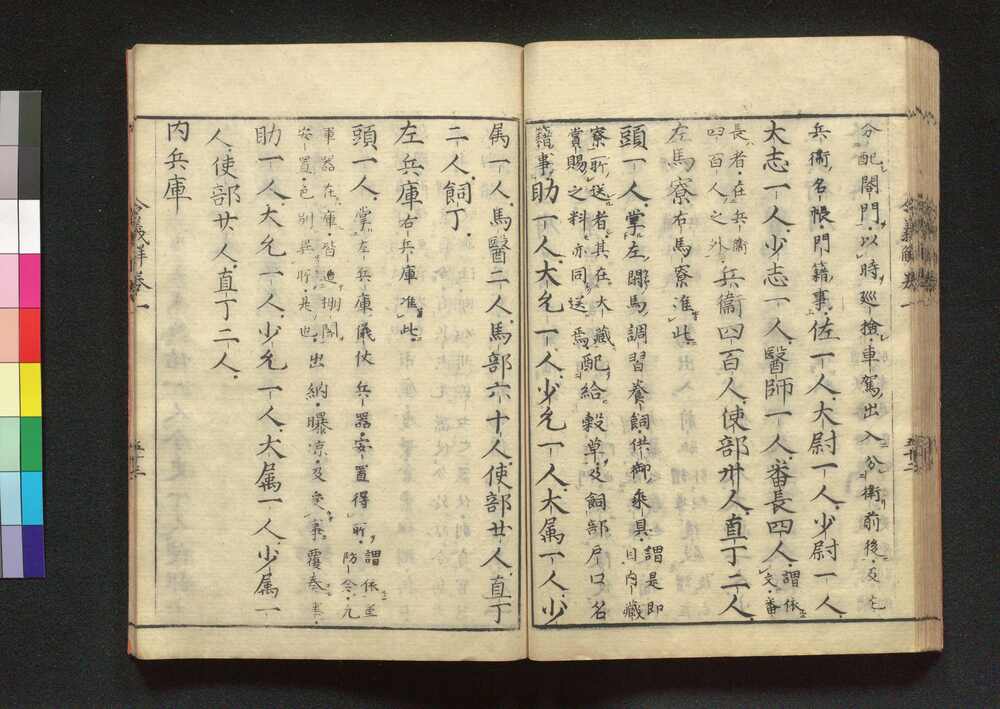 分配閤門以時巡撿車駕出入分衛前後及左
兵衛名帳門籍事佐一人大尉一人少尉一人
大志一人少志一人醫師一人番長四人謂依文番
長者在兵衛四百人之外兵衛四百人使部卅人直丁二人
左馬寮右馬寮准此
頭一人掌左閑馬調習養飼供御乗具謂是即内藏
寮所送者其在大藏賞賜之料亦同送焉配給穀草及飼部戸口名
籍事助一人大允一人少允一人大属一人少
属一人馬醫二人馬部六十人使部廿人直丁
二人飼丁
左兵庫右兵庫准此
頭一人掌左兵庫儀仗兵器安置得所謂依軍防令凡
軍器在庫皆造棚閣安置色別異所是也出納曝凉及受事覆奏事
助一人大允一人少允一人大属一人少属一
人使部廿人直丁二人
内兵庫
令義解卷一
五十二